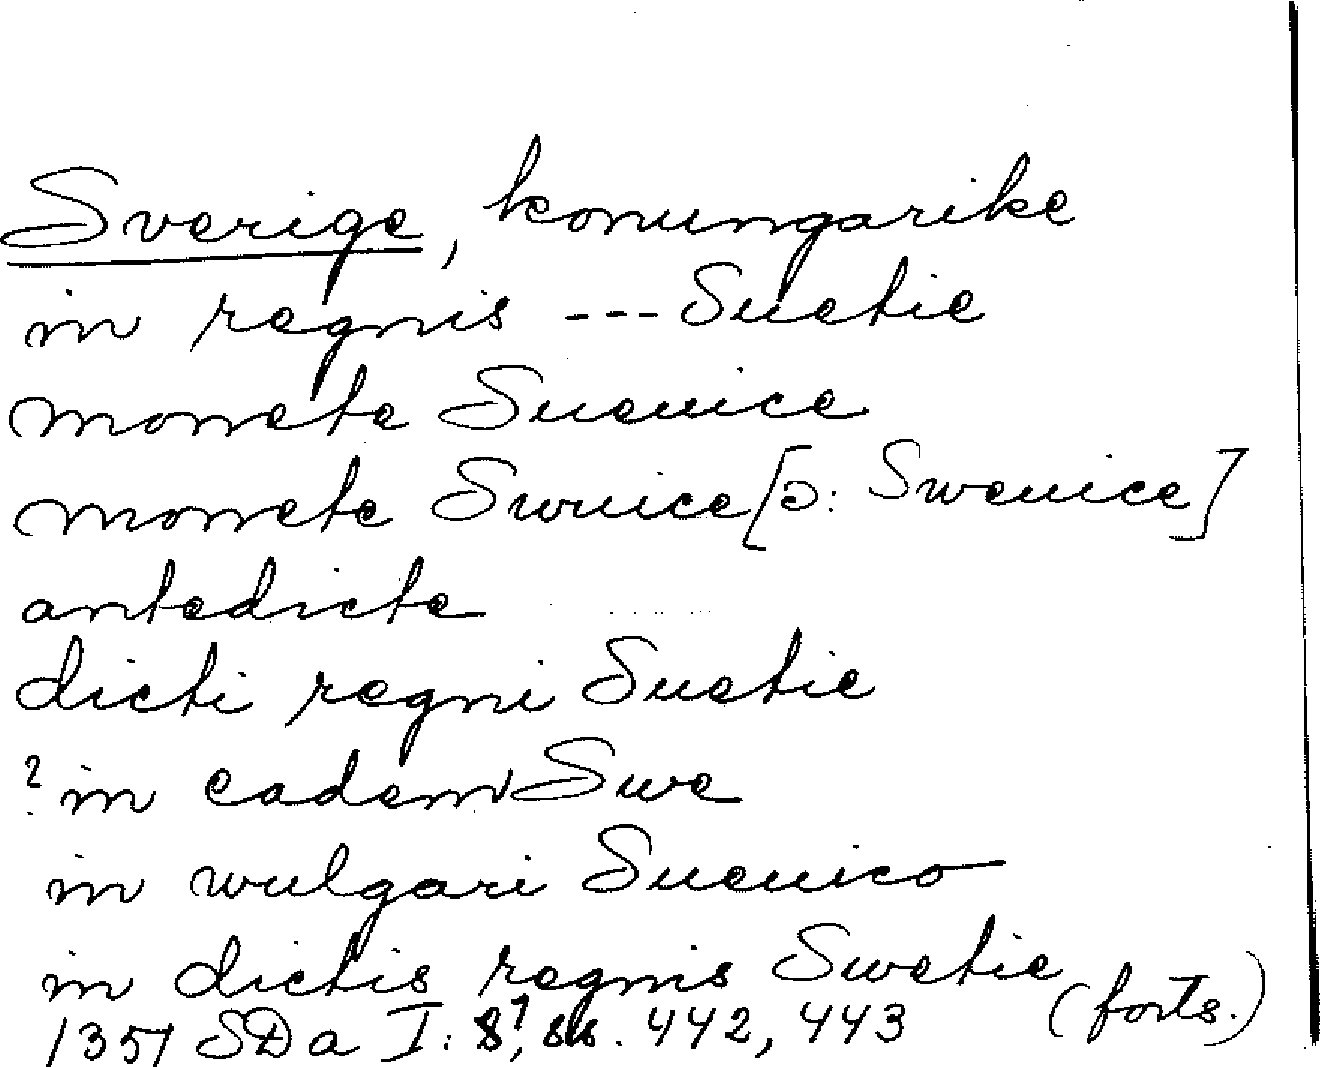 Sverige, konungarike
in regnis --- Suetie
monete Suenice
monete Swnice [ɔ: Swenice]
antedicte
dicti regni Suetie
? in eadem Swe
in wulgari Suenico
in dictis regnis Swetie (forts.)
1351 SDa I: 8¹, ss. 442, 443